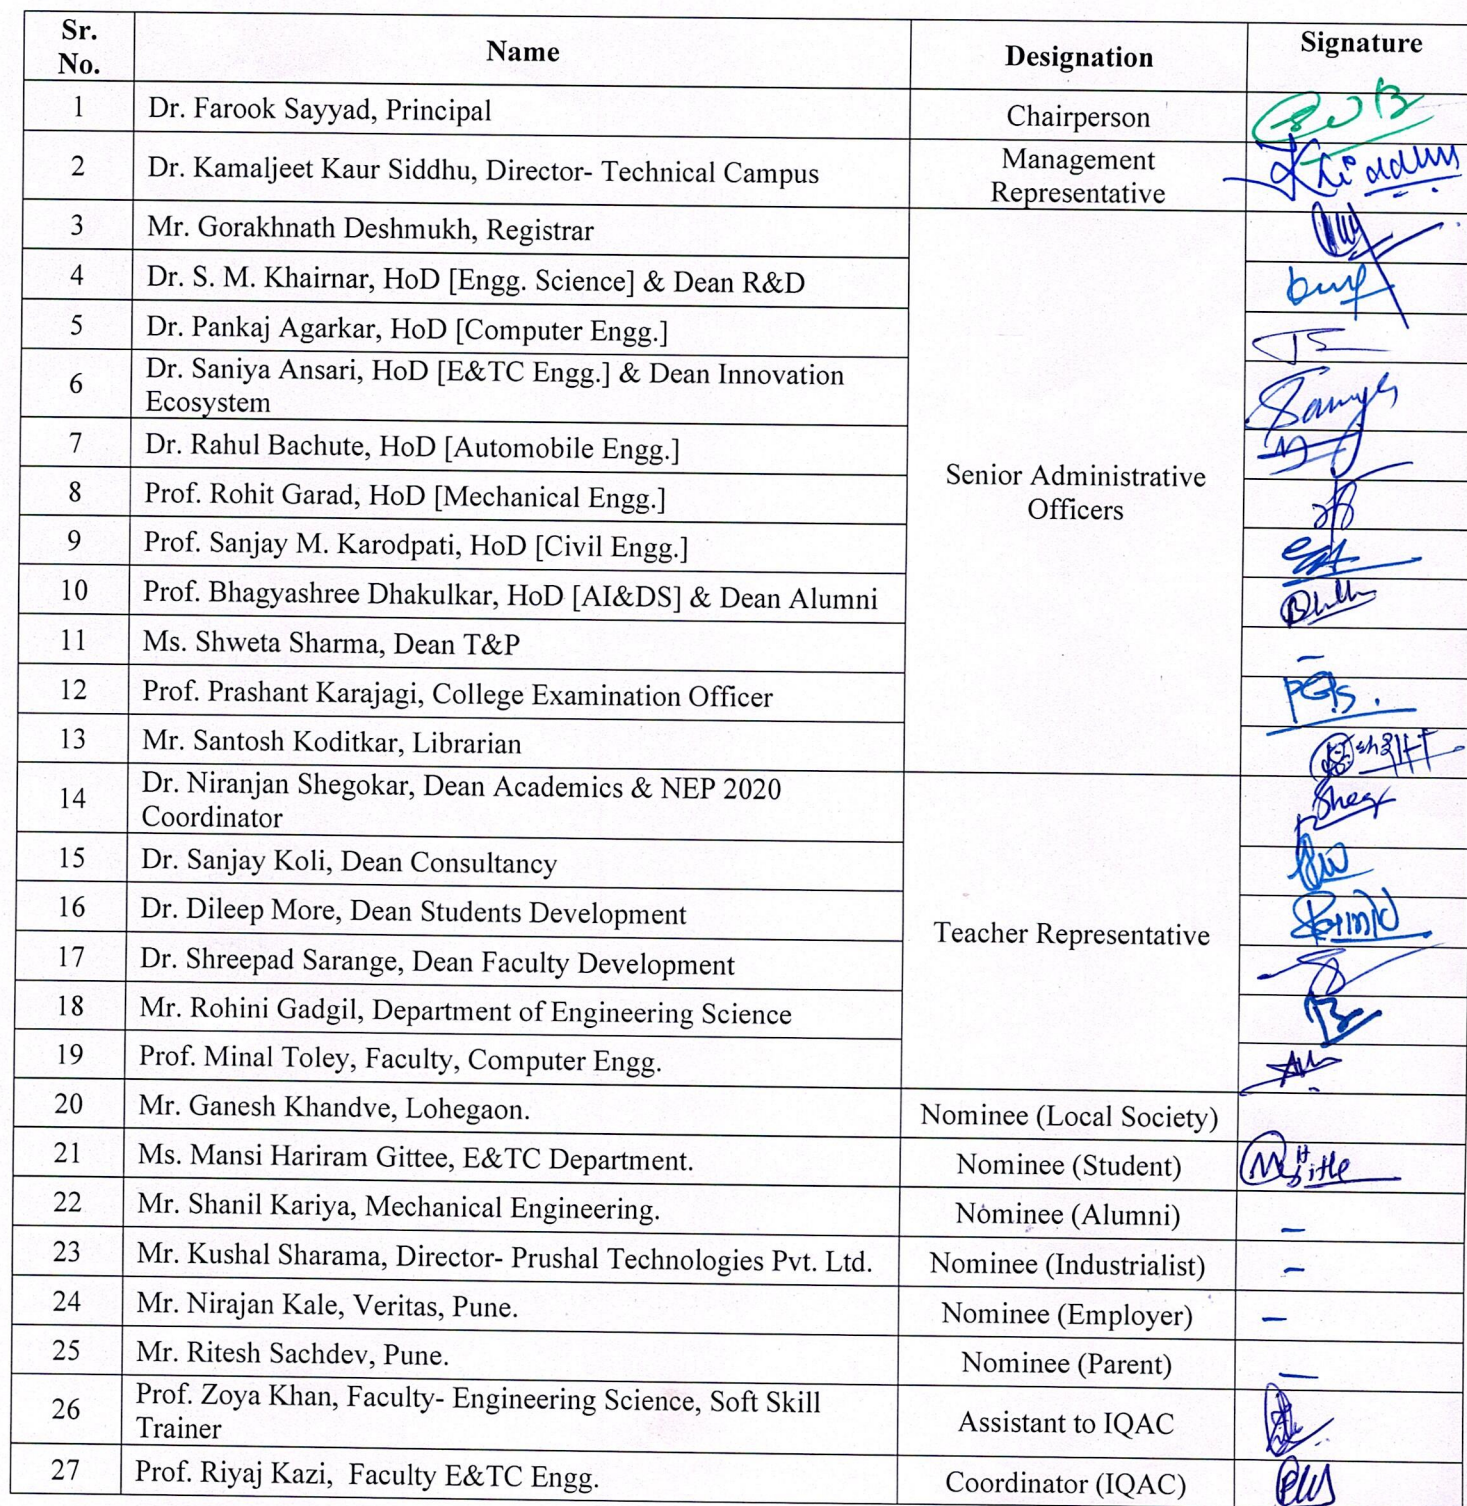 Sr. No. Name Designation Signature
1 Dr. Farook Sayyad, Principal Chairperson
2 Dr. Kamaljeet Kaur Siddhu, Director- Technical Campus Management Representative
3 Mr. Gorakhnath Deshmukh, Registrar
4 Dr. S. M. Khairnar, HoD [Engg. Science] & Dean R&D
5 Dr. Pankaj Agarkar, HoD [Computer Engg.]
6 Dr. Saniya Ansari, HoD [E&TC Engg.] & Dean Innovation
Ecosystem
7 Dr. Rahul Bachute, HoD [Automobile Engg.]
Senior Administrative
Officers
8 Prof. Rohit Garad, HoD [Mechanical Engg.]
9 Prof. Sanjay M. Karodpati, HoD [Civil Engg.]
10 Prof. Bhagyashree Dhakulkar, HoD [AI&DS] & Dean Alumni
11 Ms. Shweta Sharma, Dean T&P –
12 Prof. Prashant Karajagi, College Examination Officer
13 Mr. Santosh Koditkar, Librarian
14 Dr. Niranjan Shegokar, Dean Academics & NEP 2020
Coordinator
15 Dr. Sanjay Koli, Dean Consultancy
16 Dr. Dileep More, Dean Students Development
Teacher Representative
17 Dr. Shreepad Sarange, Dean Faculty Development
18 Mr. Rohini Gadgil, Department of Engineering Science
19 Prof. Minal Toley, Faculty, Computer Engg.
20 Mr. Ganesh Khandve, Lohegaon. Nominee (Local Society)
21 Ms. Mansi Hariram Gittee, E&TC Department. Nominee (Student)
22 Mr. Shanil Kariya, Mechanical Engineering. Nominee (Alumni) –
23 Mr. Kushal Sharama, Director- Prushal Technologies Pvt. Ltd. Nominee (Industrialist) –
24 Mr. Nirajan Kale, Veritas, Pune. Nominee (Employer) –
25 Mr. Ritesh Sachdev, Pune. Nominee (Parent) –
26 Prof. Zoya Khan, Faculty- Engineering Science, Soft Skill
Trainer Assistant to IQAC
27 Prof. Riyaj Kazi, Faculty E&TC Engg. Coordinator (IQAC)